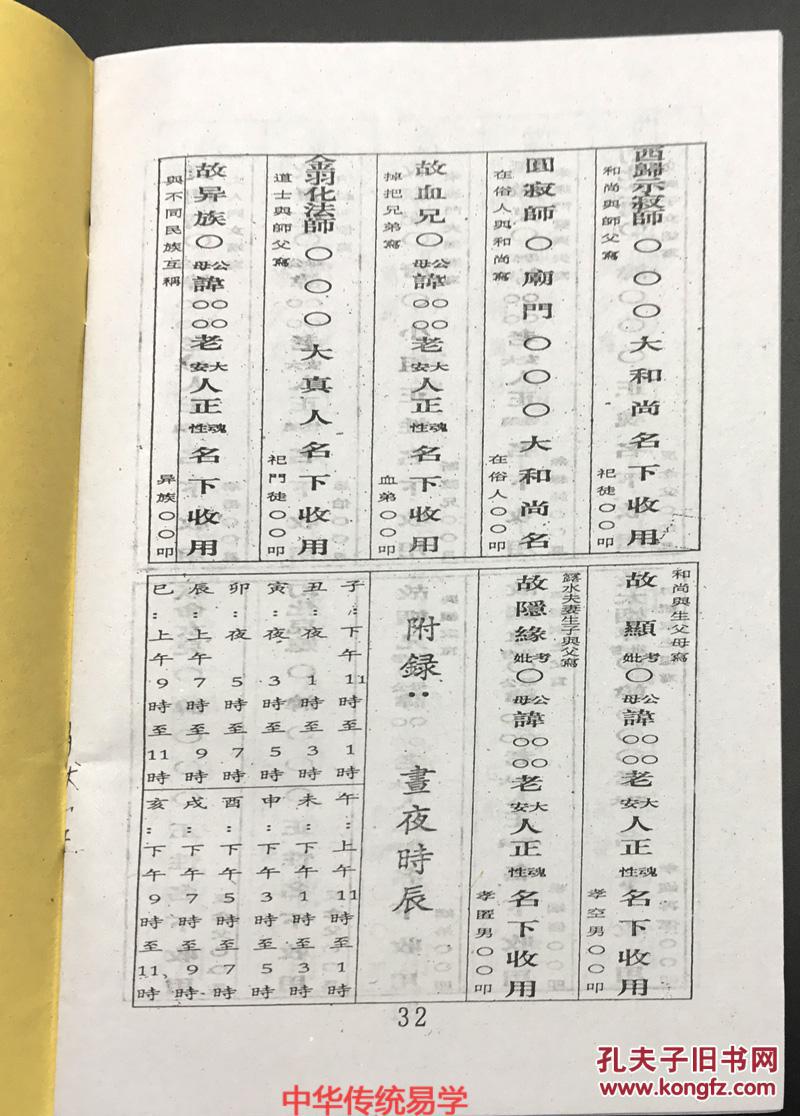 西歸示寂師〇〇〇大和尚名下收用
和尚與師父寫
祀徒〇〇叩
圓寂師〇廟門〇〇〇大和尚名
在俗人與和尚寫
在俗人〇〇叩
故血兄〇公母諱〇〇〇〇老大安人正魂性名下收用
掉把兄弟寫
血弟〇〇叩
金羽化法師〇〇〇大真人名下收用
道士與師父寫
祀門徒〇〇叩
故异族〇公母諱〇〇〇〇老大安人正魂性名下收用
與不同民族互稱
异族〇〇叩
和尚與生父母寫
故顯考妣〇公母諱〇〇〇〇老大安人正魂性名下收用
孝空男〇〇叩
露水夫妻生子與父寫
故隠緣考妣〇公母諱〇〇〇〇老大安人正魂性名下收用
孝匿男〇〇叩
附録：晝夜時辰
子：下午11時至1時
丑：夜1時至3時
寅：夜3時至5時
卯：夜5時至7時
辰：上午7時至9時
巳：上午9時至11時
午：上午11時至1時
未：下午1時至3時
申：下午3時至5時
酉：下午5時至7時
戌：下午7時至9時
亥：下午9時至11時
32
中华传统易学
孔夫子旧书网
www.kongfz.com